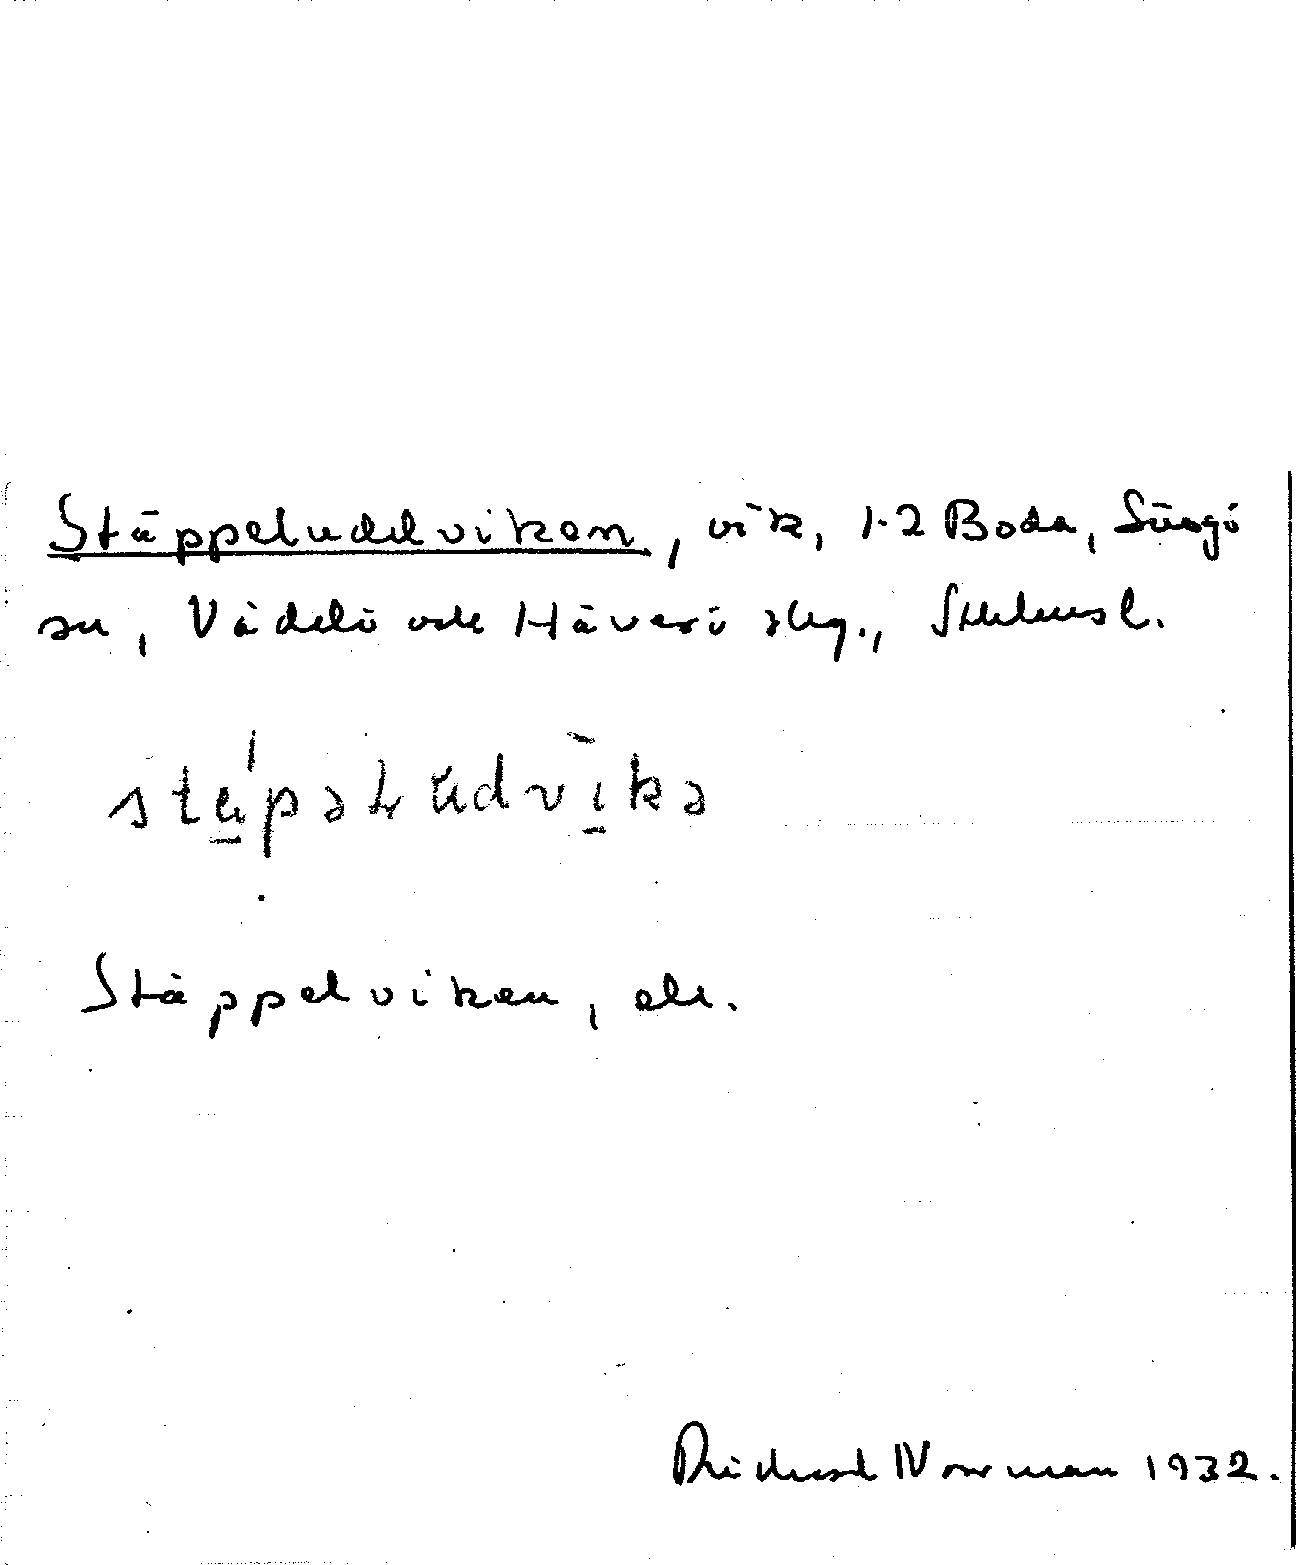 Stäppeluddviken, vik, 1-2 Boda, Singö
sn, Väddö och Häverö skg., Sthlmsl.
Stäppelviken, ek.
Richard Norrman 1932.